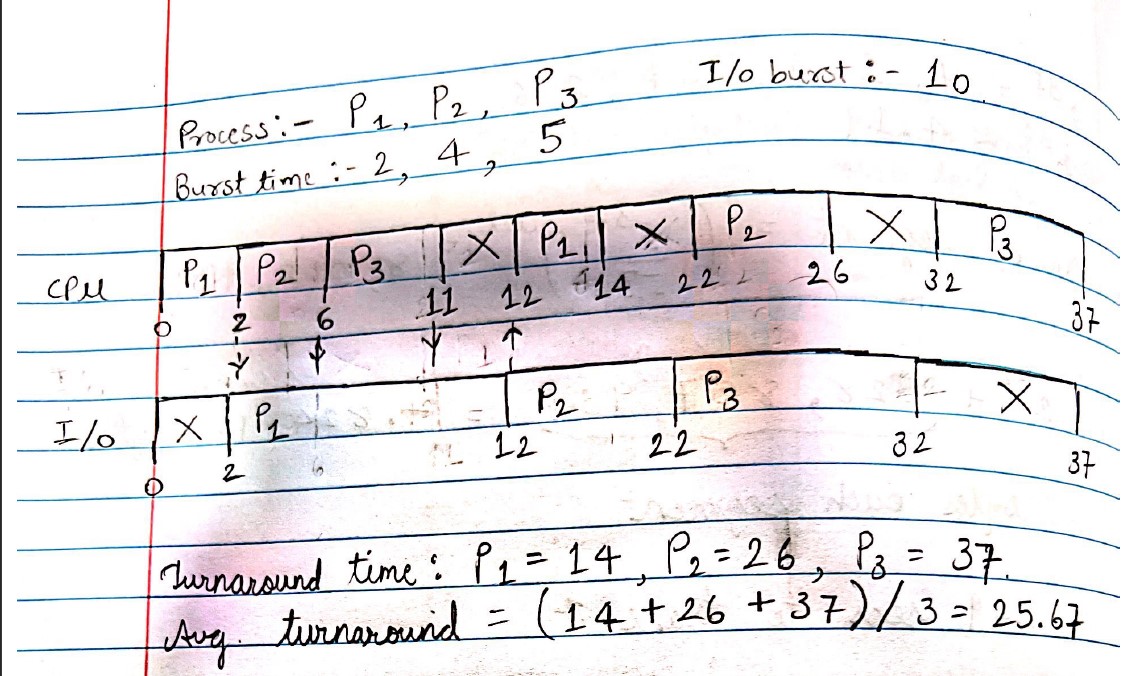 I/o burst :- 10
Process :- P1, P2, P3
Burst time :- 2, 4, 5
CPU P1 P2 P3 X P1 X P2 X P3
0 2 6 11 12 14 22 26 32 37
I/o X P1 P2 P3 X
0 2 6 12 22 32 37
Turnaround time : P1 = 14, P2 = 26, P3 = 37.
Avg. turnaround = (14 + 26 + 37) / 3 = 25.67